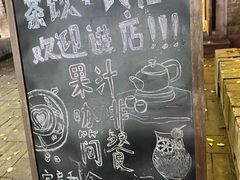 茶饮
欢迎进店!!!
果汁
咖啡
简餐